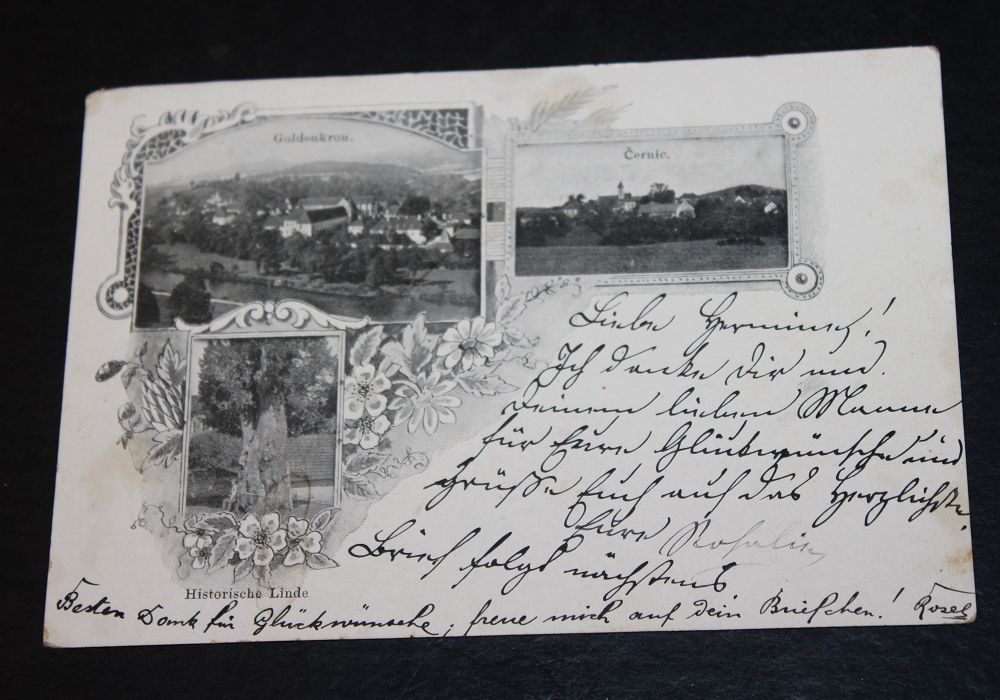 Goldenkron.
Černic.
Liebe Hermine!
Ich danke Dir und
Deinem lieben Manne
für Eure Glückwünsche und
grüße Euch auf das Herzlichste.
Eure Rosalie
Brief folgt nächstens
Historische Linde
Besten Dank für Glückwünsche, freue mich auf dein Briefchen! Rosel